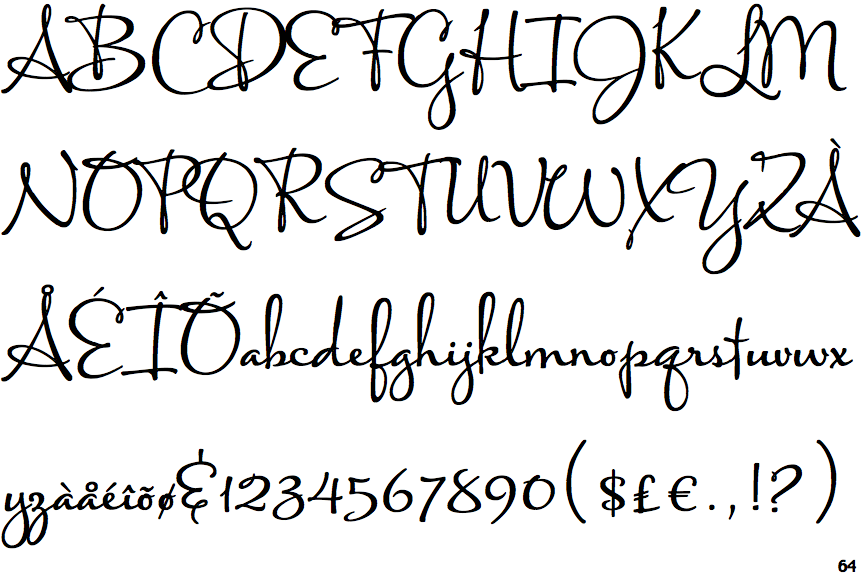 ABCDEFGHIJKLM
NOPQRSTUVWXYZÀ
ÅÉÎÕabcdefghijklmnopqrstuvwx
yzàåéîõø&1234567890($£€.,!?)
64